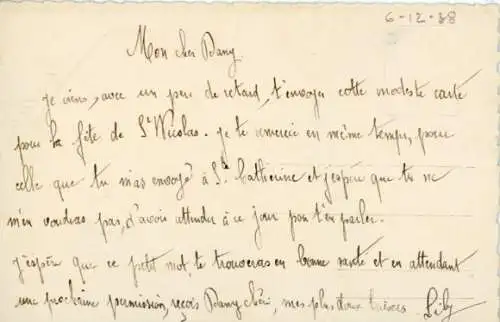 6-12-38
Mon cher Dany
je viens, avec un peu de retard, t'envoyer cette modeste carte
pour la fête de St Nicolas. je te remercie en même temps, pour
celle que tu m'as envoyé à Ste Catherine et j'espère que tu ne
m'en voudras pas, d'avoir attendu à ce jour pour t'en parler.
j'espère que ce petit mot, te trouveras en bonne santé et en attendant
une prochaine permission, reçois Dany chéri, mes plus doux baisers. Lily